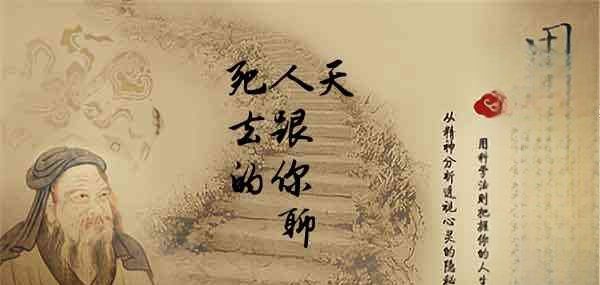 死去的
人跟你聊
天
从精神分析透视心灵的隐秘
用科学法则把握你的人生